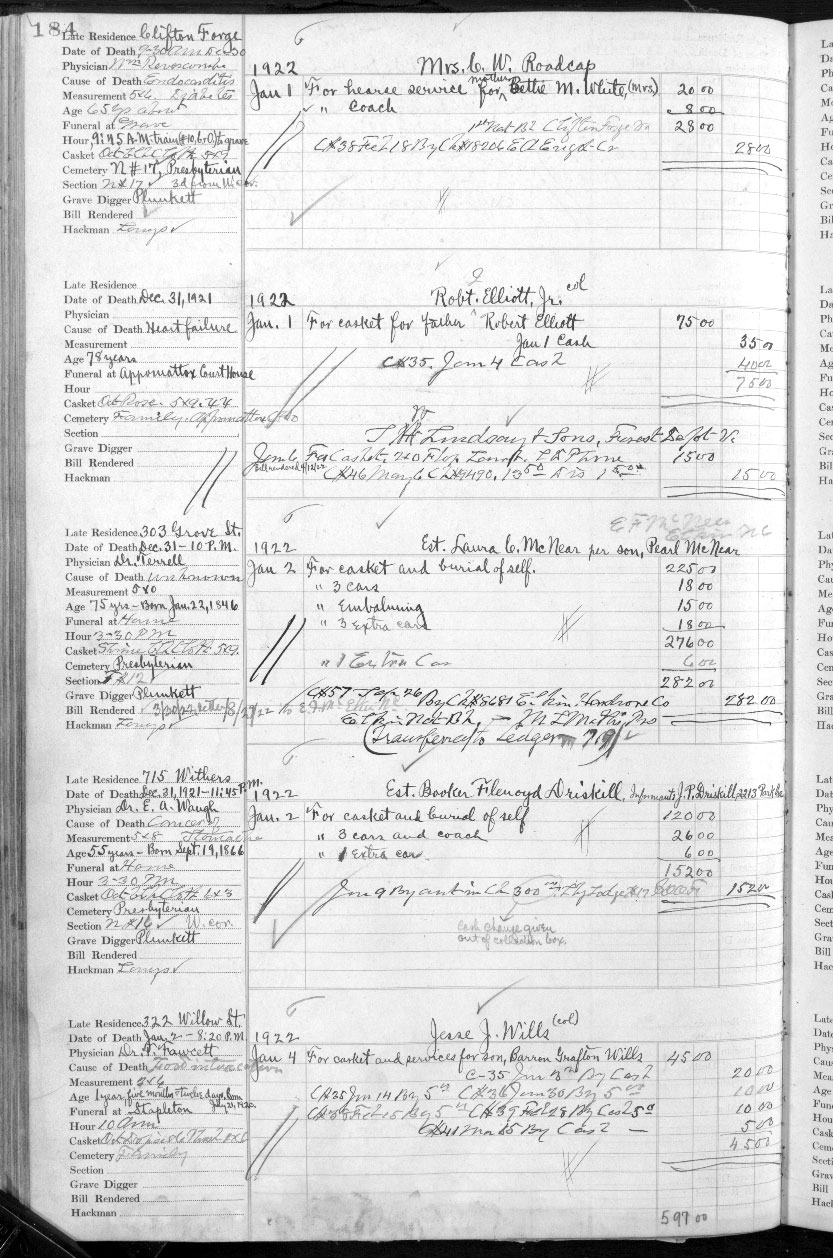 184
Late Residence Clifton Forge
Date of Death 9-30 AM Dec 30
Physician Wm
Cause of Death Endocarditis
Measurement 5x6 Diabetes
Age 65 yr about
Funeral at Grave
Hour, 9:45 A.M. train (#10, 6r0) to grave
Casket
Cemetery N#17, Presbyterian
Section N#17 ✓ 3d from W. cor.
Grave Digger Plunkett
Bill Rendered
Hackman
1922 Mrs. C. W. Roadcap
Jan 1 For hearse service for mother Bettie M. White, (Mrs) 20 00
✓ " Coach 8 00
1st Nat Bk Clifton Forge Va 28 00
C#38 Feb 18 By Ck #18206 28 00
Late Residence
Date of Death Dec. 31, 1921
Physician
Cause of Death Heart failure
Measurement
Age 78 years
Funeral at Appomattox Court House
Hour
Casket Oct Rose. 5x9.44
Cemetery Family. Appomattox Co
Section
Grave Digger
Bill Rendered
Hackman
1922 Robt. Elliott, Jr. col
Jan. 1 For casket for father Robert Elliott 75 00
Jan 1 Cash 35 00
C#35. Jan 4 Cash 40 00
75 00
Lindsay & Sons, Forest Depot Va.
Jan 6 For Casket, 15 00
Bill rendered 4/12/22
C#46 May 6 Ck #9490, 13 50 Dis 1 50 15 00
Late Residence 303 Grove St.
Date of Death Dec. 31-10 P.M.
Physician Dr. Terrell
Cause of Death Unknown
Measurement 5x0
Age 75 yrs - Born Jan. 22, 1846
Funeral at Home
Hour 3-30 P M
Casket
Cemetery Presbyterian
Section
Grave Digger Plunkett
Bill Rendered
Hackman
E F McNeer
1922 Est. Laura C. McNear per son, Pearl McNear
Jan 2 For casket and burial of self. 225 00
" 3 cars 18 00
" Embalming 15 00
" 3 extra cars 18 00
276 00
" 1 Extra Car 6 00
282 00
C#57 Sep 26 By Ck #8681 Elkin Co 282 00
Elkin Nat Bk,
(Transferred to Ledger 79)
Late Residence 715 Withers
Date of Death Dec. 31, 1921-11:45 P.M.
Physician Dr. E. A. Waugh
Cause of Death Cancer of
Measurement 5x8 Stomache
Age 55 years - Born Sept. 19, 1866
Funeral at Home
Hour 3-30 P M
Casket Oct 6x3
Cemetery Presbyterian
Section N#16 ✓ W. cor.
Grave Digger Plunkett
Bill Rendered
Hackman
1922 Est. Booker Flenoyd Driskill, Informants J. P. Driskill, 2213 Park Ave
Jan. 2 For casket and burial of self 120 00
" 3 cars and coach 26 00
" 1 Extra car 6 00
152 00
Jan 9 By amt in Ck 300 00 152 00
cash change given
out of collection box.
Late Residence 322 Willow St.
Date of Death Jan. 2 - 8:20 P.M.
Physician Dr. P. Fawcett
Cause of Death
Measurement 2x6
Age 1 year, five months + twelve days. Born
Funeral at Stapleton July 21, 1920.
Hour 10 am
Casket
Cemetery Family
Section
Grave Digger
Bill Rendered
Hackman
1922 Jesse J. Wills (col)
Jan 4 For casket and services for son, Barron Grafton Wills 45 00
C-35 Jan 3rd By Cash 20 00
C#35 Jan 14 By 5 00 C#36 Jan 30 By 5 00 10 00
Feb 15 By 5 00 C#39 Feb 28 By Cash 5 00 10 00
C#41 Mar 15 By Cash — 5 00
45 00
597 00